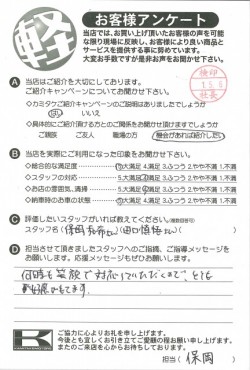 軽
お客様アンケート
当店では、お買い上げ頂いたお客様の声を可能
な限り現場に反映し、お客様により良い商品と
サービスを提供する事に努めています。
大変お手数ですが是非お声をお聞かせ下さい。
検印
社長
A 当店はご紹介を大切にしております。
ご紹介キャンペーンについてお聞かせ下さい。
◇カミタケご紹介キャンペーンのご説明はありましたでしょうか
はい いいえ
◇具体的にご紹介頂ける方とのご関係をお聞かせ頂けますでしょうか
ご親族 ご友人 職場の方 機会があれば紹介したい
B 当店を実際にご利用になった印象をお聞かせ下さい。
◇総合的な満足度 5.大満足 4.満足 3.ふつう 2.やや不満 1.不満
◇スタッフの対応 5.大満足 4.満足 3.ふつう 2.やや不満 1.不満
◇お店の雰囲気、清掃 5.大満足 4.満足 3.ふつう 2.やや不満 1.不満
◇納車時のお車の状態 5.大満足 4.満足 3.ふつう 2.やや不満 1.不満
C 評価したいスタッフがいれば教えてください。(複数回答可)
スタッフ名(
D 担当させて頂きましたスタッフへのご指摘、ご指導メッセージを
お願いします。応援メッセージもぜひお願いします。
何時も笑顔で対応していただくので、とても
好感がもてます。
K
ご協力に心よりお礼を申し上げます。
今後とも宜しくお引き立てご愛顧の程お願い申し上げます。
またのご来店を心からお待ちしております。
担当(保岡)